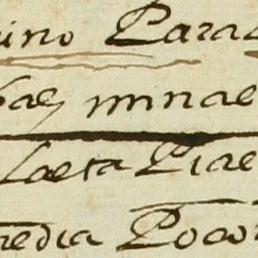 ino Para
bae minae
Laeta Piae
media Poco